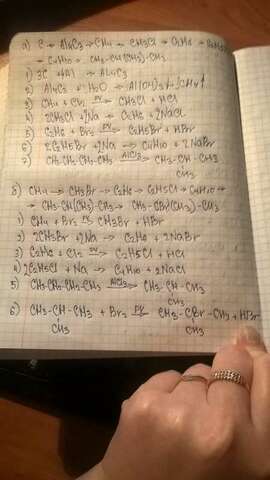 а) C → Al4C3 → CH4 → CH3Cl → C2H6 → C2H5Br
→ C4H10 → CH3-CH(CH3)-CH3
1) 3C + 4Al → Al4C3
2) Al4C3 + H2O → Al(OH)3 + CH4↑
3) CH4 + Cl2 → CH3Cl + HCl
4) 2CH3Cl + 2Na → C2H6 + 2NaCl
5) C2H6 + Br2 → C2H5Br + HBr
6) 2C2H5Br + 2Na → C4H10 + 2NaBr
7) CH3-CH2-CH2-CH3 AlCl3 → CH3-CH-CH3
CH3
б) CH4 → CH3Br → C2H6 → C2H5Cl → C4H10 →
→ CH3-CH(CH3)-CH3 → CH3-CBr(CH3)-CH3
1) CH4 + Br2 → CH3Br + HBr
2) 2CH3Br + 2Na → C2H6 + 2NaBr
3) C2H6 + Cl2 → C2H5Cl + HCl
4) 2C2H5Cl + Na → C4H10 + 2NaCl
5) CH3-CH2-CH2-CH3 AlCl3 → CH3-CH-CH3
CH3
6) CH3-CH-CH3 + Br2 → CH3-CBr-CH3 + HBr
CH3 CH3